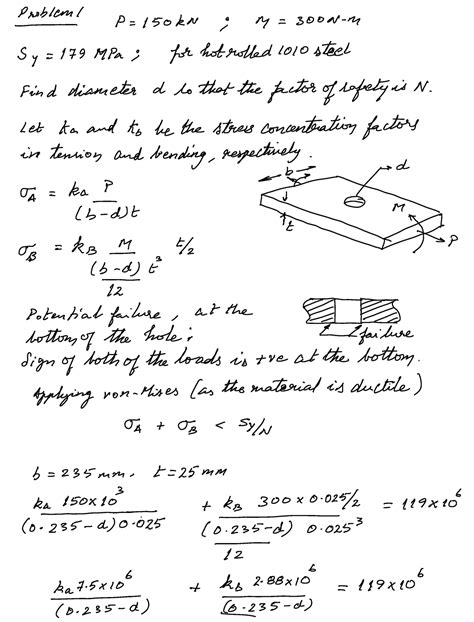 Problem 1 P = 150 kN ; M = 300 N-m
Sy = 179 MPa ; for hot rolled 1010 steel
Find diameter d so that the factor of safety is N.
Let ka and kb be the stress concentration factors
in tension and bending, respectively.
σA = ka P / (b-d)t
σB = kB M / ((b-d) t³ / 12) t/2
b
d
t
M
P
Potential failure, at the
bottom of the hole;
failure
Sign of both of the loads is +ve at the bottom.
Applying von-Mises (as the material is ductile)
σA + σB < Sy/N
b = 235 mm. t = 25 mm
ka 150x10³ / (0.235-d) 0.025 + kB 300 x 0.025/2 / ((0.235-d) 0.025³ / 12) = 119x10⁶
ka 7.5x10⁶ / (0.235-d) + kb 2.88x10⁶ / (0.235-d) = 119x10⁶